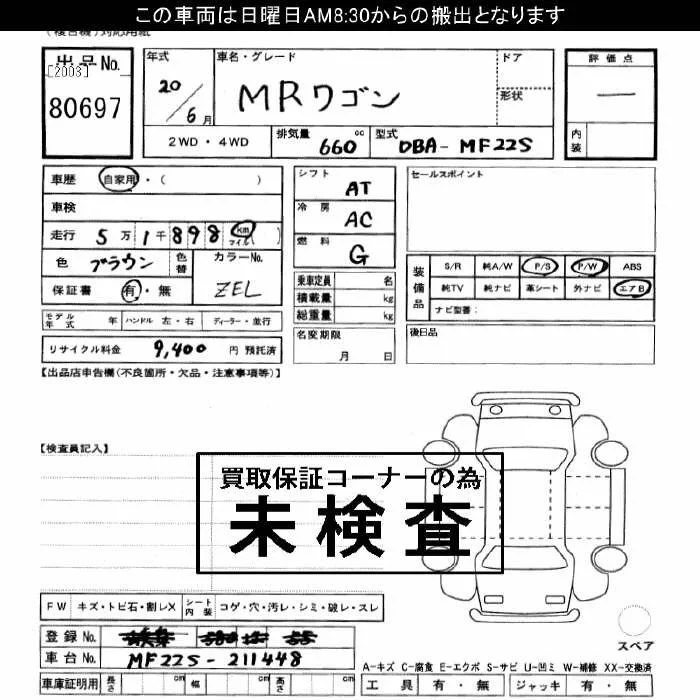 この車両は日曜日AM8:30からの搬出となります
(複合機)対応用紙
出品No.
[2003]
80697
年式
20/6月
車名・グレード
MRワゴン
ドア
形状
評価点
—
内装
2WD・4WD
排気量 660 cc
型式 DBA-MF22S
車歴 自家用・( )
車検
走行 5万1千898 km マイル( )
色 ブラウン 色替
カラーNo.
ZEL
保証書 有・無
モデル年式 年 ハンドル 左・右 ディーラー・並行
リサイクル料金 9,400 円 預託済
シフト AT
冷房 AC
燃料 G
乗車定員 名
積載量 kg
総重量 kg
名変期限
月 日
セールスポイント
装備品
S/R 純A/W P/S P/W ABS
純TV 純ナビ 革シート 外ナビ エアB
ナビ型番:
後日品
【出品店申告欄(不良箇所・欠品・注意事項等)】
【検査員記入】
買取保証コーナーの為
未検査
FW キズ・トビ石・割レX シート内装 コゲ・穴・汚レ・シミ・破レ・スレ
登録No.
車台No. MF22S-211448
車庫証明用 長さ cm 幅 cm 高さ cm
スペア
A-キズ C-腐食 E-エクボ S-サビ U-凹ミ W-補修 XX-交換済
工具 有・無 ジャッキ 有・無